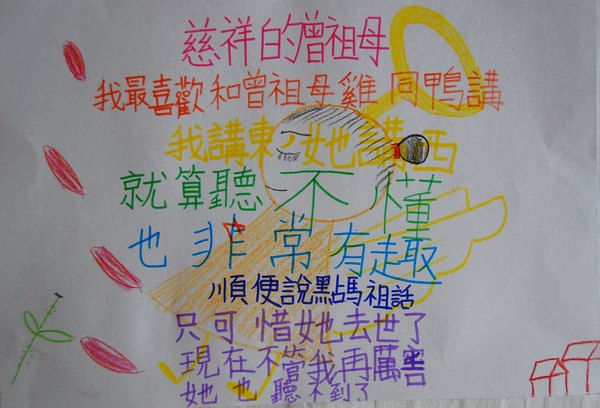 慈祥的曾祖母
我最喜歡和曾祖母雞同鴨講
我講東她講西
就算聽不懂
也非常有趣
順便說點媽祖話
只可惜她去世了
現在不管我再厲害
她也聽不到了